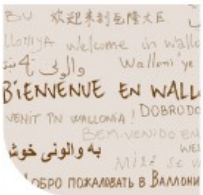 BU 欢迎来到瓦隆大区
welcome in wallo
والوني Walloni 'ye
BiENVENUE EN WALL
VENIT ÎN WALLONIA! DOBRODO
BEMVENIDO EM
به والونی خوش WE
Milé se v
ОБРО ПОЖАЛОВАТЬ В ВАЛЛОНИ